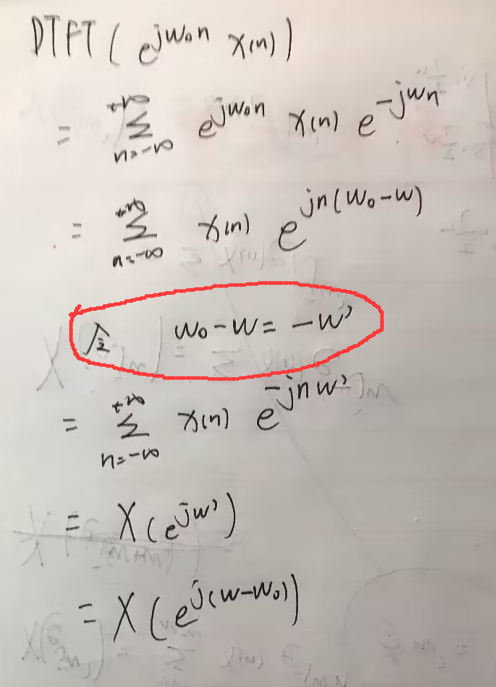 DTFT ( e^{jw₀n} x(n) )
= \sum_{n=-∞}^{+∞} e^{jw₀n} x(n) e^{-jwn}
= \sum_{n=-∞}^{+∞} x(n) e^{jn(w₀-w)}
令 w₀-w = -w'
= \sum_{n=-∞}^{+∞} x(n) e^{-jnw'}
= X(e^{jw'})
= X(e^{j(w-w₀)})